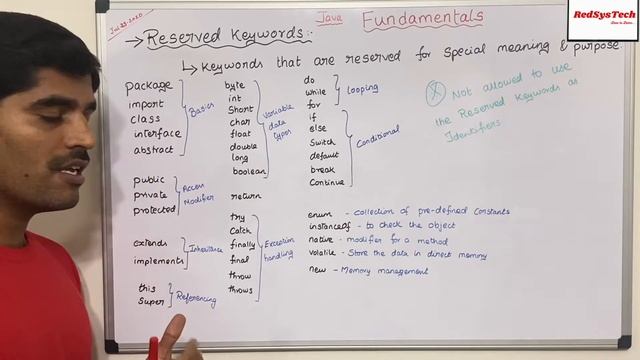 Jul 23-2020
Java Fundamentals
RedSysTech
→ Reserved Keywords :-
↳ Keywords that are reserved for special meaning & purpose.
package
import
class
interface
abstract
Basics
byte
int
Short
char
float
double
long
boolean
Variable
data
types
do
while
for
Looping
if
else
Switch
default
break
Continue
Conditional
X Not allowed to use
the Reserved Keywords as
Identifiers
public
private
protected
Access
Modifier
return
extends
implements
Inheritance
try
Catch
finally
final
throw
throws
Exception
handling
enum - collection of pre-defined Constants
instanceof - to check the object
native - modifier for a method
volatile - Store the data in direct memory
new - Memory management
this
Super
Referencing